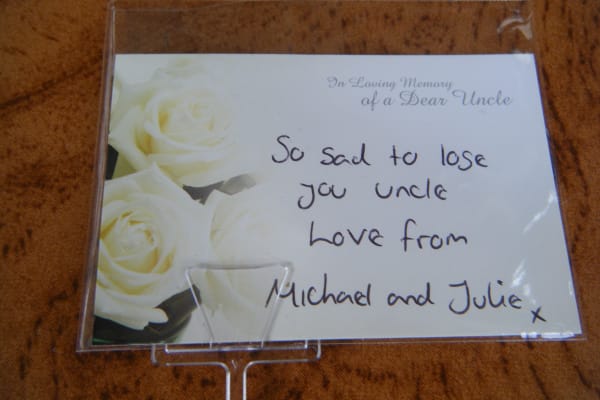 In Loving Memory
of a Dear Uncle
So sad to lose
you uncle
Love from
Michael and Julie x